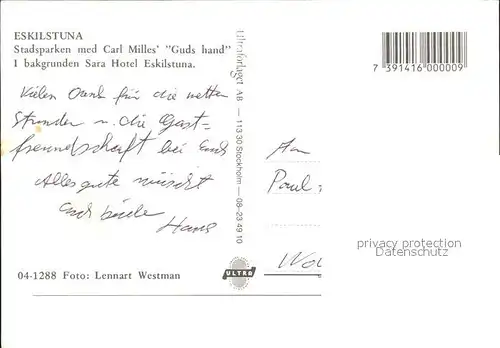 ESKILSTUNA
Stadsparken med Carl Milles' "Guds hand"
I bakgrunden Sara Hotel Eskilstuna.
Vielen Dank für die netten
Stunden u. die Gast-
freundschaft bei Euch
Alles gute wünscht
Euch beide
Hans
04-1288 Foto: Lennart Westman
Ultraförlaget AB — 113 30 Stockholm — 08-23 49 10
ULTRA
7 391416 000009
An
Paul
privacy protection
Datenschutz